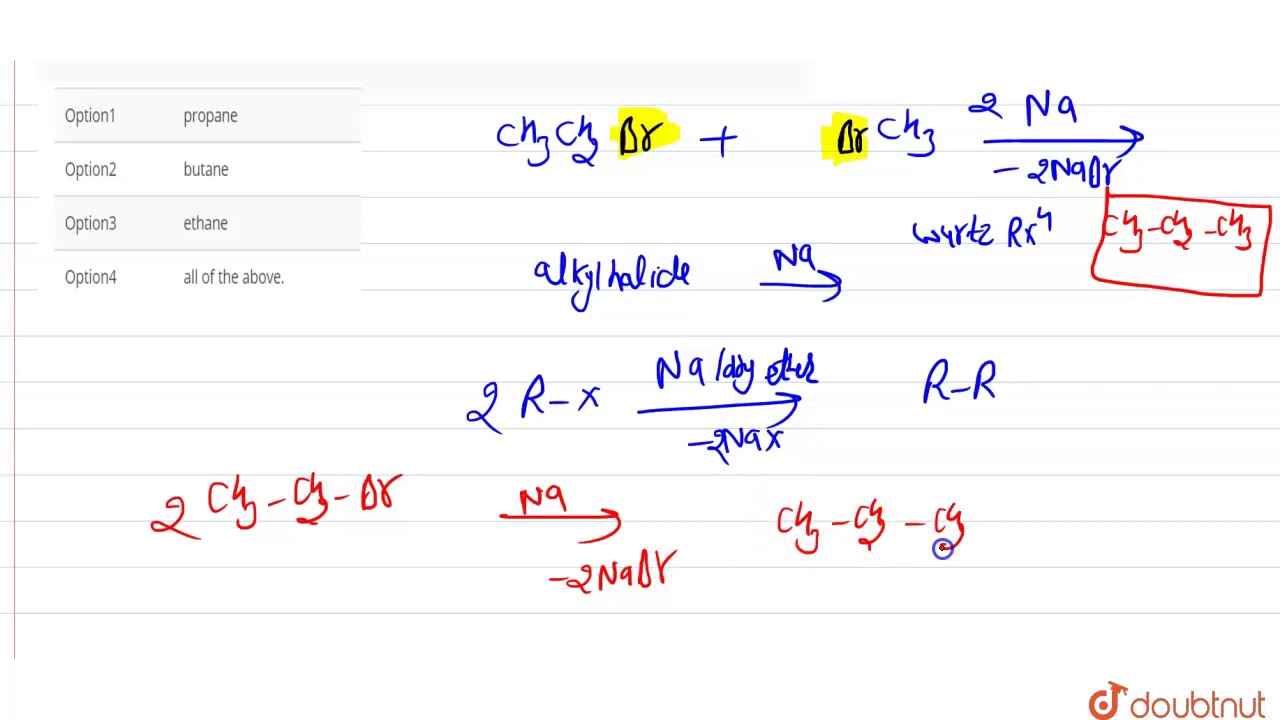 Option1 propane
Option2 butane
Option3 ethane
Option4 all of the above.
CH3CH2Br + BrCH3 2 Na
-2NaBr
wurtz Rxn
CH3-CH2-CH3
alkylhalide Na
2 R-X Na/dry ether R-R
-2NaX
2 CH3-CH2-Br Na CH3-CH2-CH2
-2NaBr
doubtnut